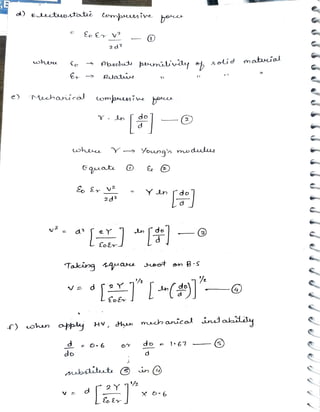 d) Electrostatic compressive force
= ε₀ εr V² / 2d² — ①
where ε₀ → Absolute permitivity of solid material
εr → Relative " " "
e) Mechanical compressive force
Y . ln [ do / d ] — ②
where Y → Young's modulus
Equate ① & ②
ε₀ εr V² / 2d² = Y ln [ do / d ]
V² = d² [ 2Y / ε₀εr ] ln [ do / d ] — ③
Taking square root on B.S
V = d [ 2Y / ε₀εr ]^1/2 [ ln ( do / d ) ]^1/2 — ④
f) when apply HV, then mechanical instability
d / do = 0.6 or do / d = 1.67 — ⑤
substitute ⑤ in ④
V = d [ 2Y / ε₀εr ]^1/2 × 0.6